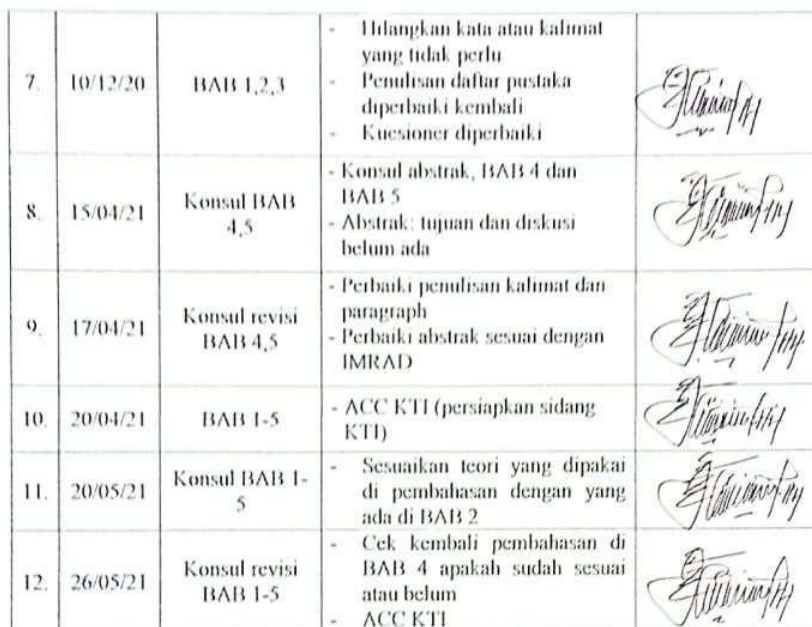 7. 10/12/20 BAB 1,2,3
- Hilangkan kata atau kalimat
yang tidak perlu
- Penulisan daftar pustaka
diperbaiki kembali
- Kuesioner diperbaiki
8. 15/04/21 Konsul BAB
4,5
- Konsul abstrak, BAB 4 dan
BAB 5
- Abstrak: tujuan dan diskusi
belum ada
9. 17/04/21 Konsul revisi
BAB 4,5
- Perbaiki penulisan kalimat dan
paragraph
- Perbaiki abstrak sesuai dengan
IMRAD
10. 20/04/21 BAB 1-5
- ACC KTI (persiapkan sidang
KTI)
11. 20/05/21 Konsul BAB 1-
5
- Sesuaikan teori yang dipakai
di pembahasan dengan yang
ada di BAB 2
12. 26/05/21 Konsul revisi
BAB 1-5
- Cek kembali pembahasan di
BAB 4 apakah sudah sesuai
atau belum
- ACC KTI